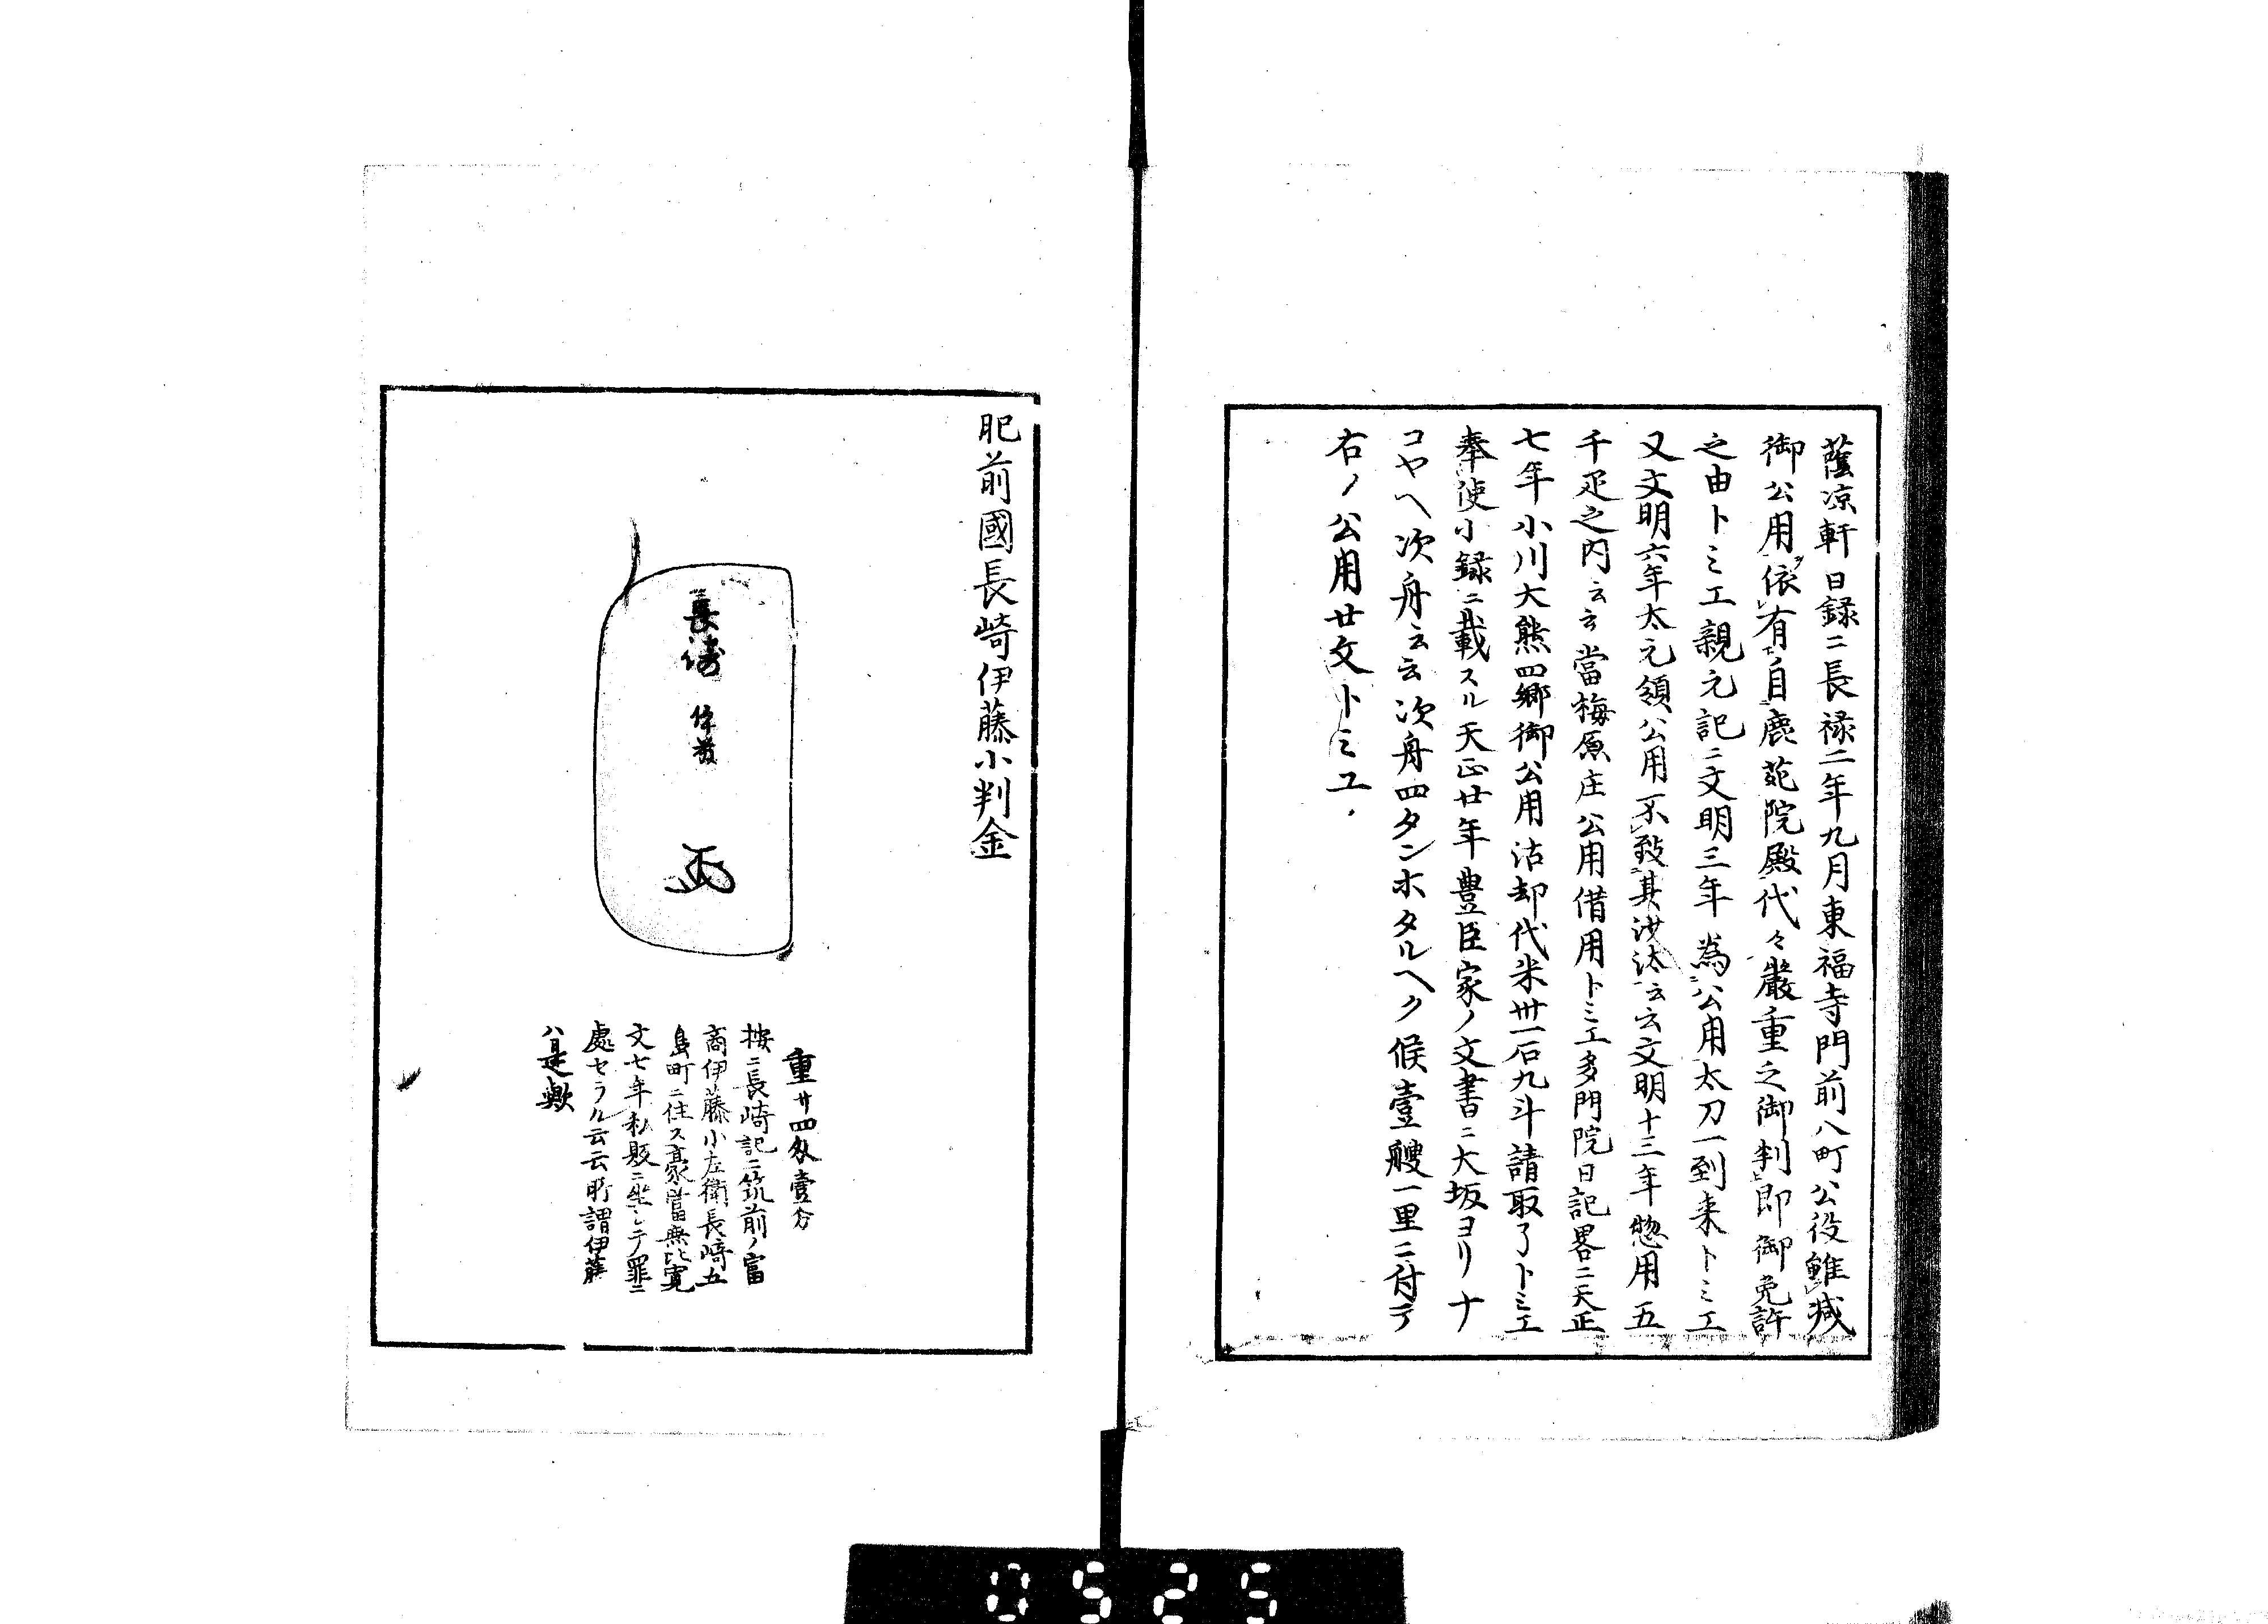 蔭凉軒日録ニ長禄二年九月東福寺門前八町公役雖減
御公用依有自鹿苑院殿代々嚴重之御判即御免許
之由トミエ親元記ニ文明三年為公用太刀一到来トミエ
又文明六年太元領公用不致其沙汰云云文明十三年惣用五
千疋之内云云當梅原庄公用借用トミエ多門院日記畧ニ天正
七年小川大熊四郷御公用沽却代米卅一石九斗請取了トミエ
奉使小録ニ載スル天正廿年豊臣家ノ文書ニ大坂ヨリナ
コヤヘ次舟云云次舟四タンホタルヘク候壹艘一里ニ付テ
右ノ公用廿文トミユ
肥前國長崎伊藤小判金
長崎
両
重廿四匁壹分
按ニ長崎記ニ筑前ノ富
商伊藤小左衛長崎五
島町ニ住ス豪富無比寛
文七年私販ニ坐シテ罪ニ
處セラル云云所謂伊藤
ハ是歟
0525